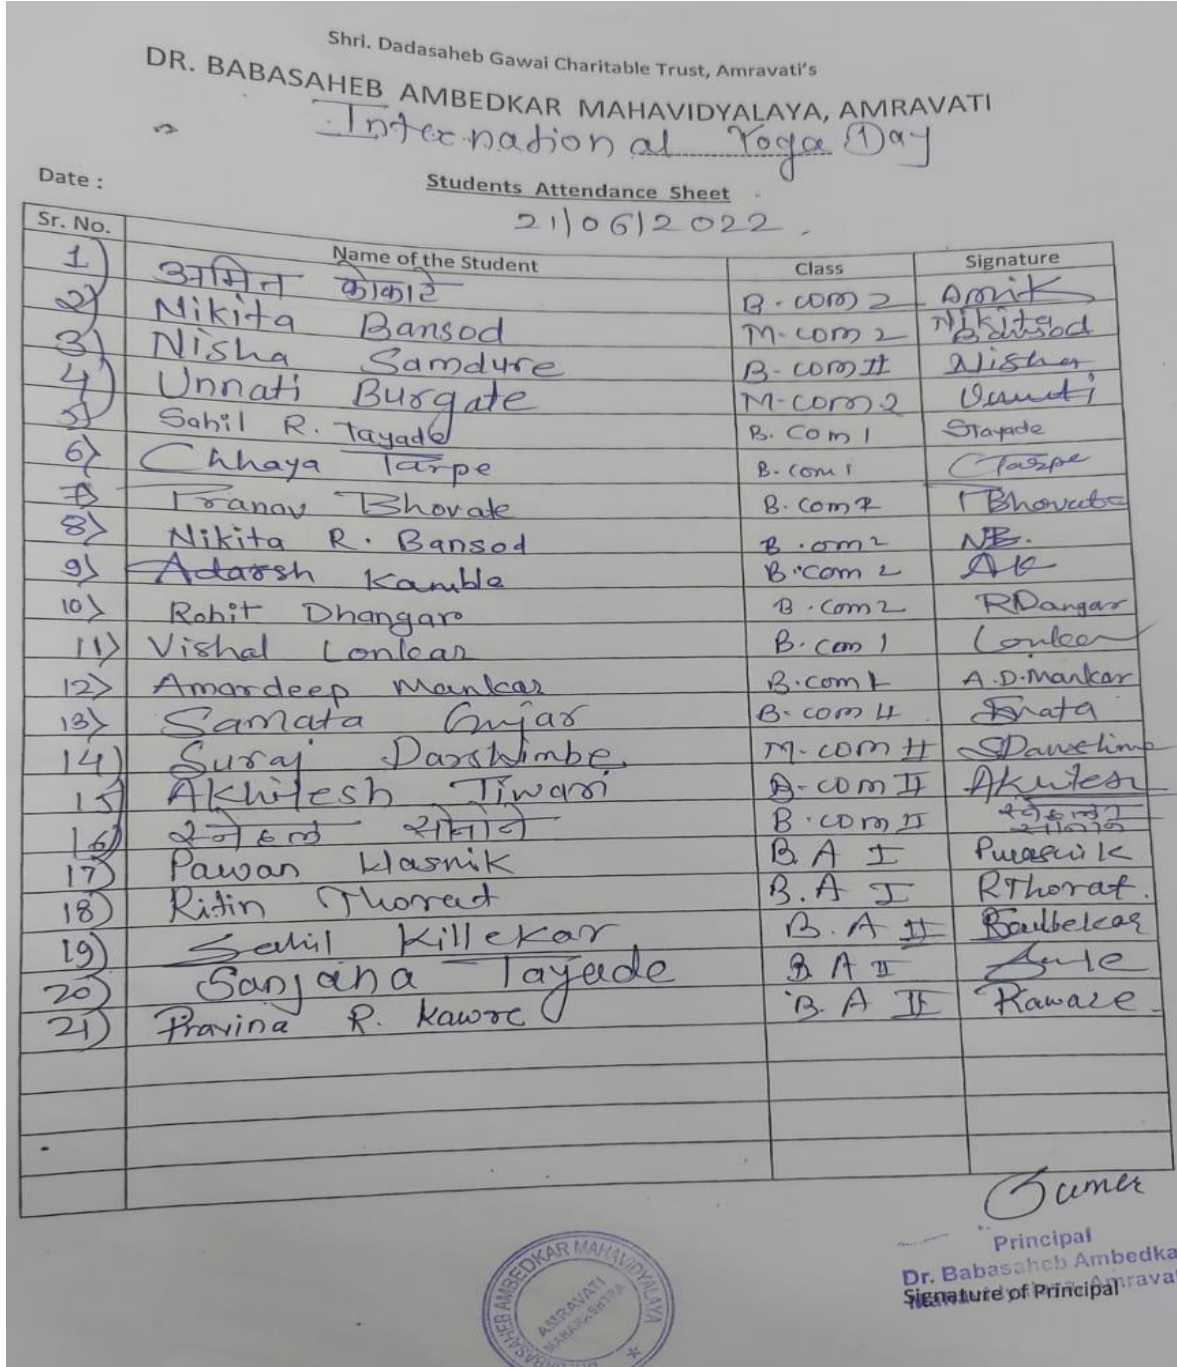 Shri. Dadasaheb Gawai Charitable Trust, Amravati's
DR. BABASAHEB AMBEDKAR MAHAVIDYALAYA, AMRAVATI
International Yoga Day
Date :
Students Attendance Sheet
21/06/2022
Sr. No. Name of the Student Class Signature
1) अमित कोकाटे B.com 2 Amik
2) Nikita Bansod M-com 2 Nikita Bansod
3) Nisha Samdure B-com II Nisha
4) Unnati Burgate M-com 2
5) Sahil R. Tayade B. Com 1 STayade
6) Chhaya Tarpe B.com 1 CTarpe
7) Pranav Bhovate B.com 2 PBhovate
8) Nikita R. Bansod B.om 2 NB.
9) Adarsh Kamble B.com 2 AK
10) Rohit Dhangar B.com 2 RDangar
11) Vishal Lonkar B.com 1 Lonkar
12) Amardeep Mankar B.com 1 A.D.Mankar
13) Samata Gujar B-com 4
14) Suraj Darshimbe M-com II
15) Akhilesh Tiwari B-com II Akhilesh
16) B.com II
17) Pawan Wasnik B A I Pwasnik
18) Ritin Thorat B.A I RThorat.
19) Sahil Killekar B.A II
20) Sanjana Tayade B A II
21) Pravina R. Kawre B.A II Kawaze
Principal
Dr. Babasaheb Ambedka
Signature of Principal
BABASAHEB AMBEDKAR MAHAVIDYALAYA
AMRAVATI
MAHARASHTRA